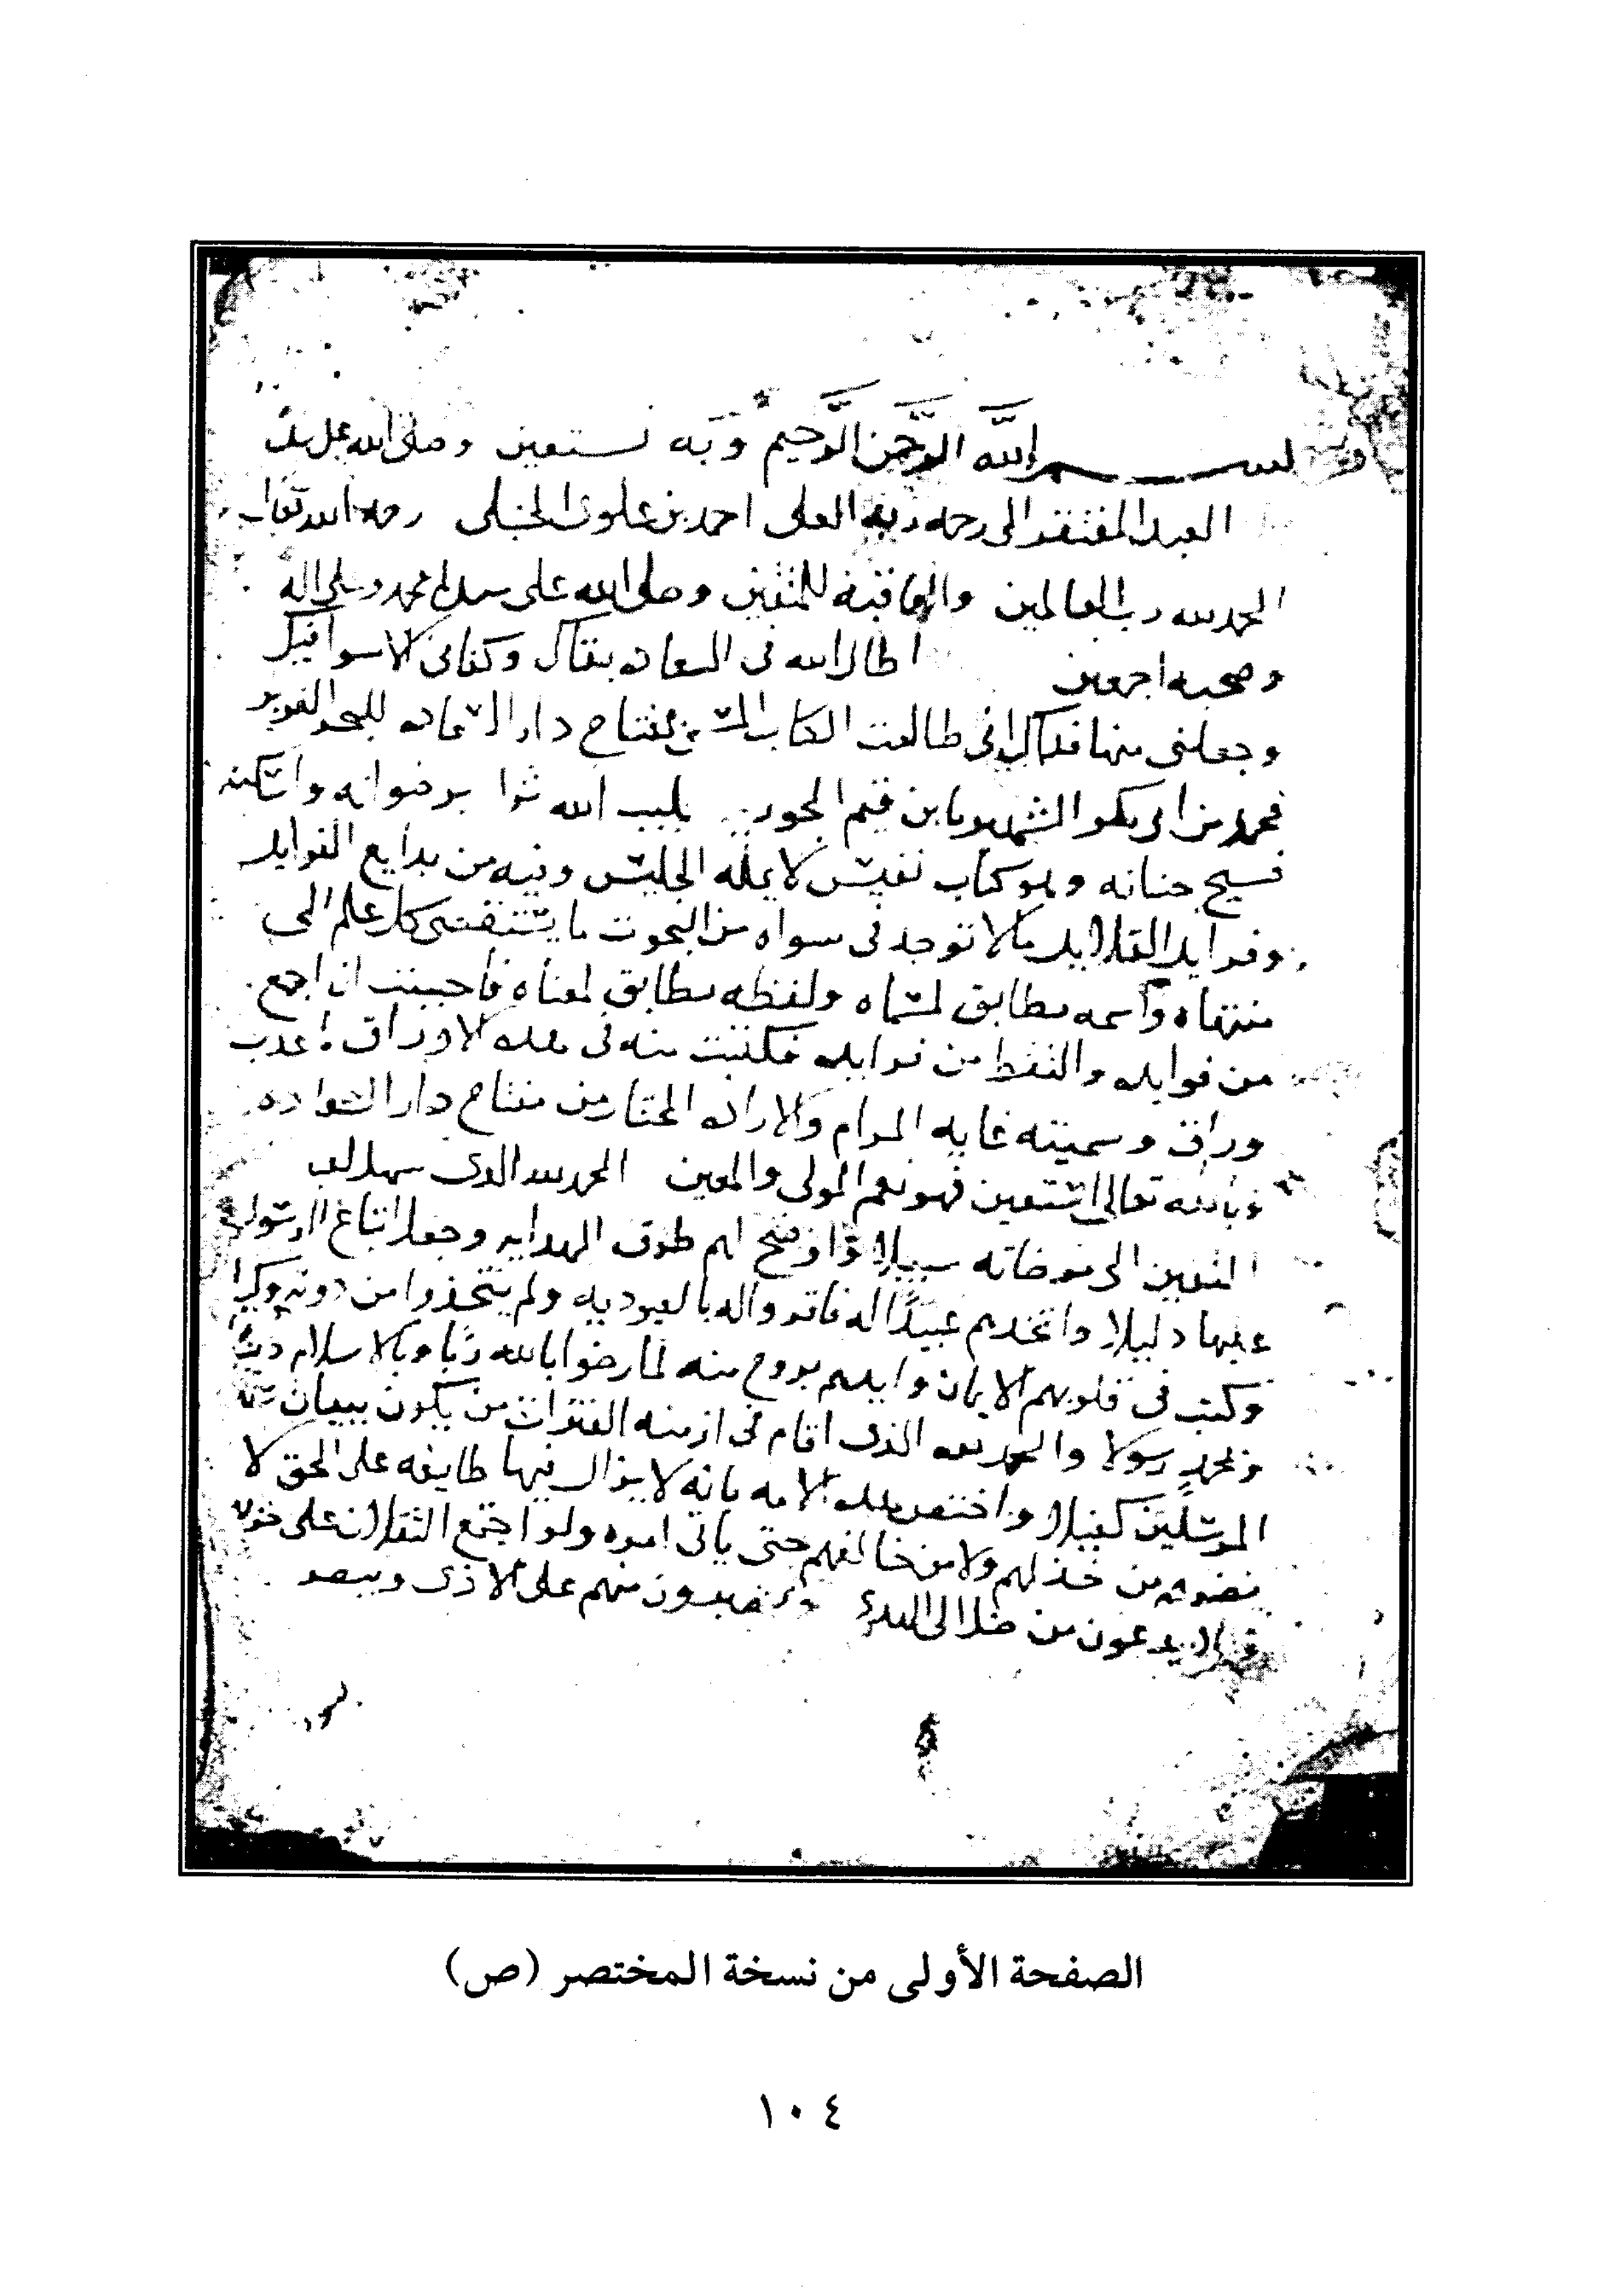 بسم الله الرحمن الرحيم وبه نستعين وصلى الله على
العبد المفتقر الى رحمه ربه العلى احمد بن علوى الحنبلى رحمه الله تعالى
الحمد لله رب العالمين والعاقبة للمتقين وصلى الله على سيدنا محمد وعلى اله
وصحبه اجمعين اطال الله فى السعاده بقاك وكفانى الاسوا فيك
وجعلنى منها فداك انى طالعت الكتاب من مفتاح دار السعاده للبحر الغزير
محمد بن ابى بكر الشهير بابن قيم الجوزيه ثراه برضوانه واسكنه
فسيح جنانه وهو كتاب نفيس لا يمله الجليس وفيه من بدايع الفوايد
وفرايد القلايد ما لا توجد فى سواه من البحوث ما يستقصى كل علم الى
منتهاه واسمه مطابق لمسماه ولفظه مطابق لمعناه فاحببت ان اجمع
من فوايده والتقط من فرايده فكتبت منه فى هذه الاوراق اعذب
وراق وسميته غايه المرام والاراده المختار من مفتاح دار السعاده
وبالله تعالى استعين فهو نعم المولى والمعين الحمد لله الذى سهل
المتقين الى مرضاته سبيلا واوضح لهم طرق الهدايه وجعل اتباع الرسول
عليها دليلا واتخذهم عبيدا له فاقروا له بالعبوديه ولم يتخذوا من دونه وكيلا
وكتب فى قلوبهم الايمان وايدهم بروح منه لما رضوا بالله ربا وبالاسلام دينا
وبمحمد رسولا والحمد لله الذى اقام فى ازمنه الفترات من يكون ببيان
المرسلين كفيلا واختص هذه الامه بانه لا يزال فيها طايفه على الحق لا
يضرهم من خذلهم ولا من خالفهم حتى ياتى امره ولو اجتمع الثقلان على
يدعون من ضل الى الهدى ويصبرون منهم على الاذى ويبصر
الصفحة الأولى من نسخة المختصر (ص)
١٠٤